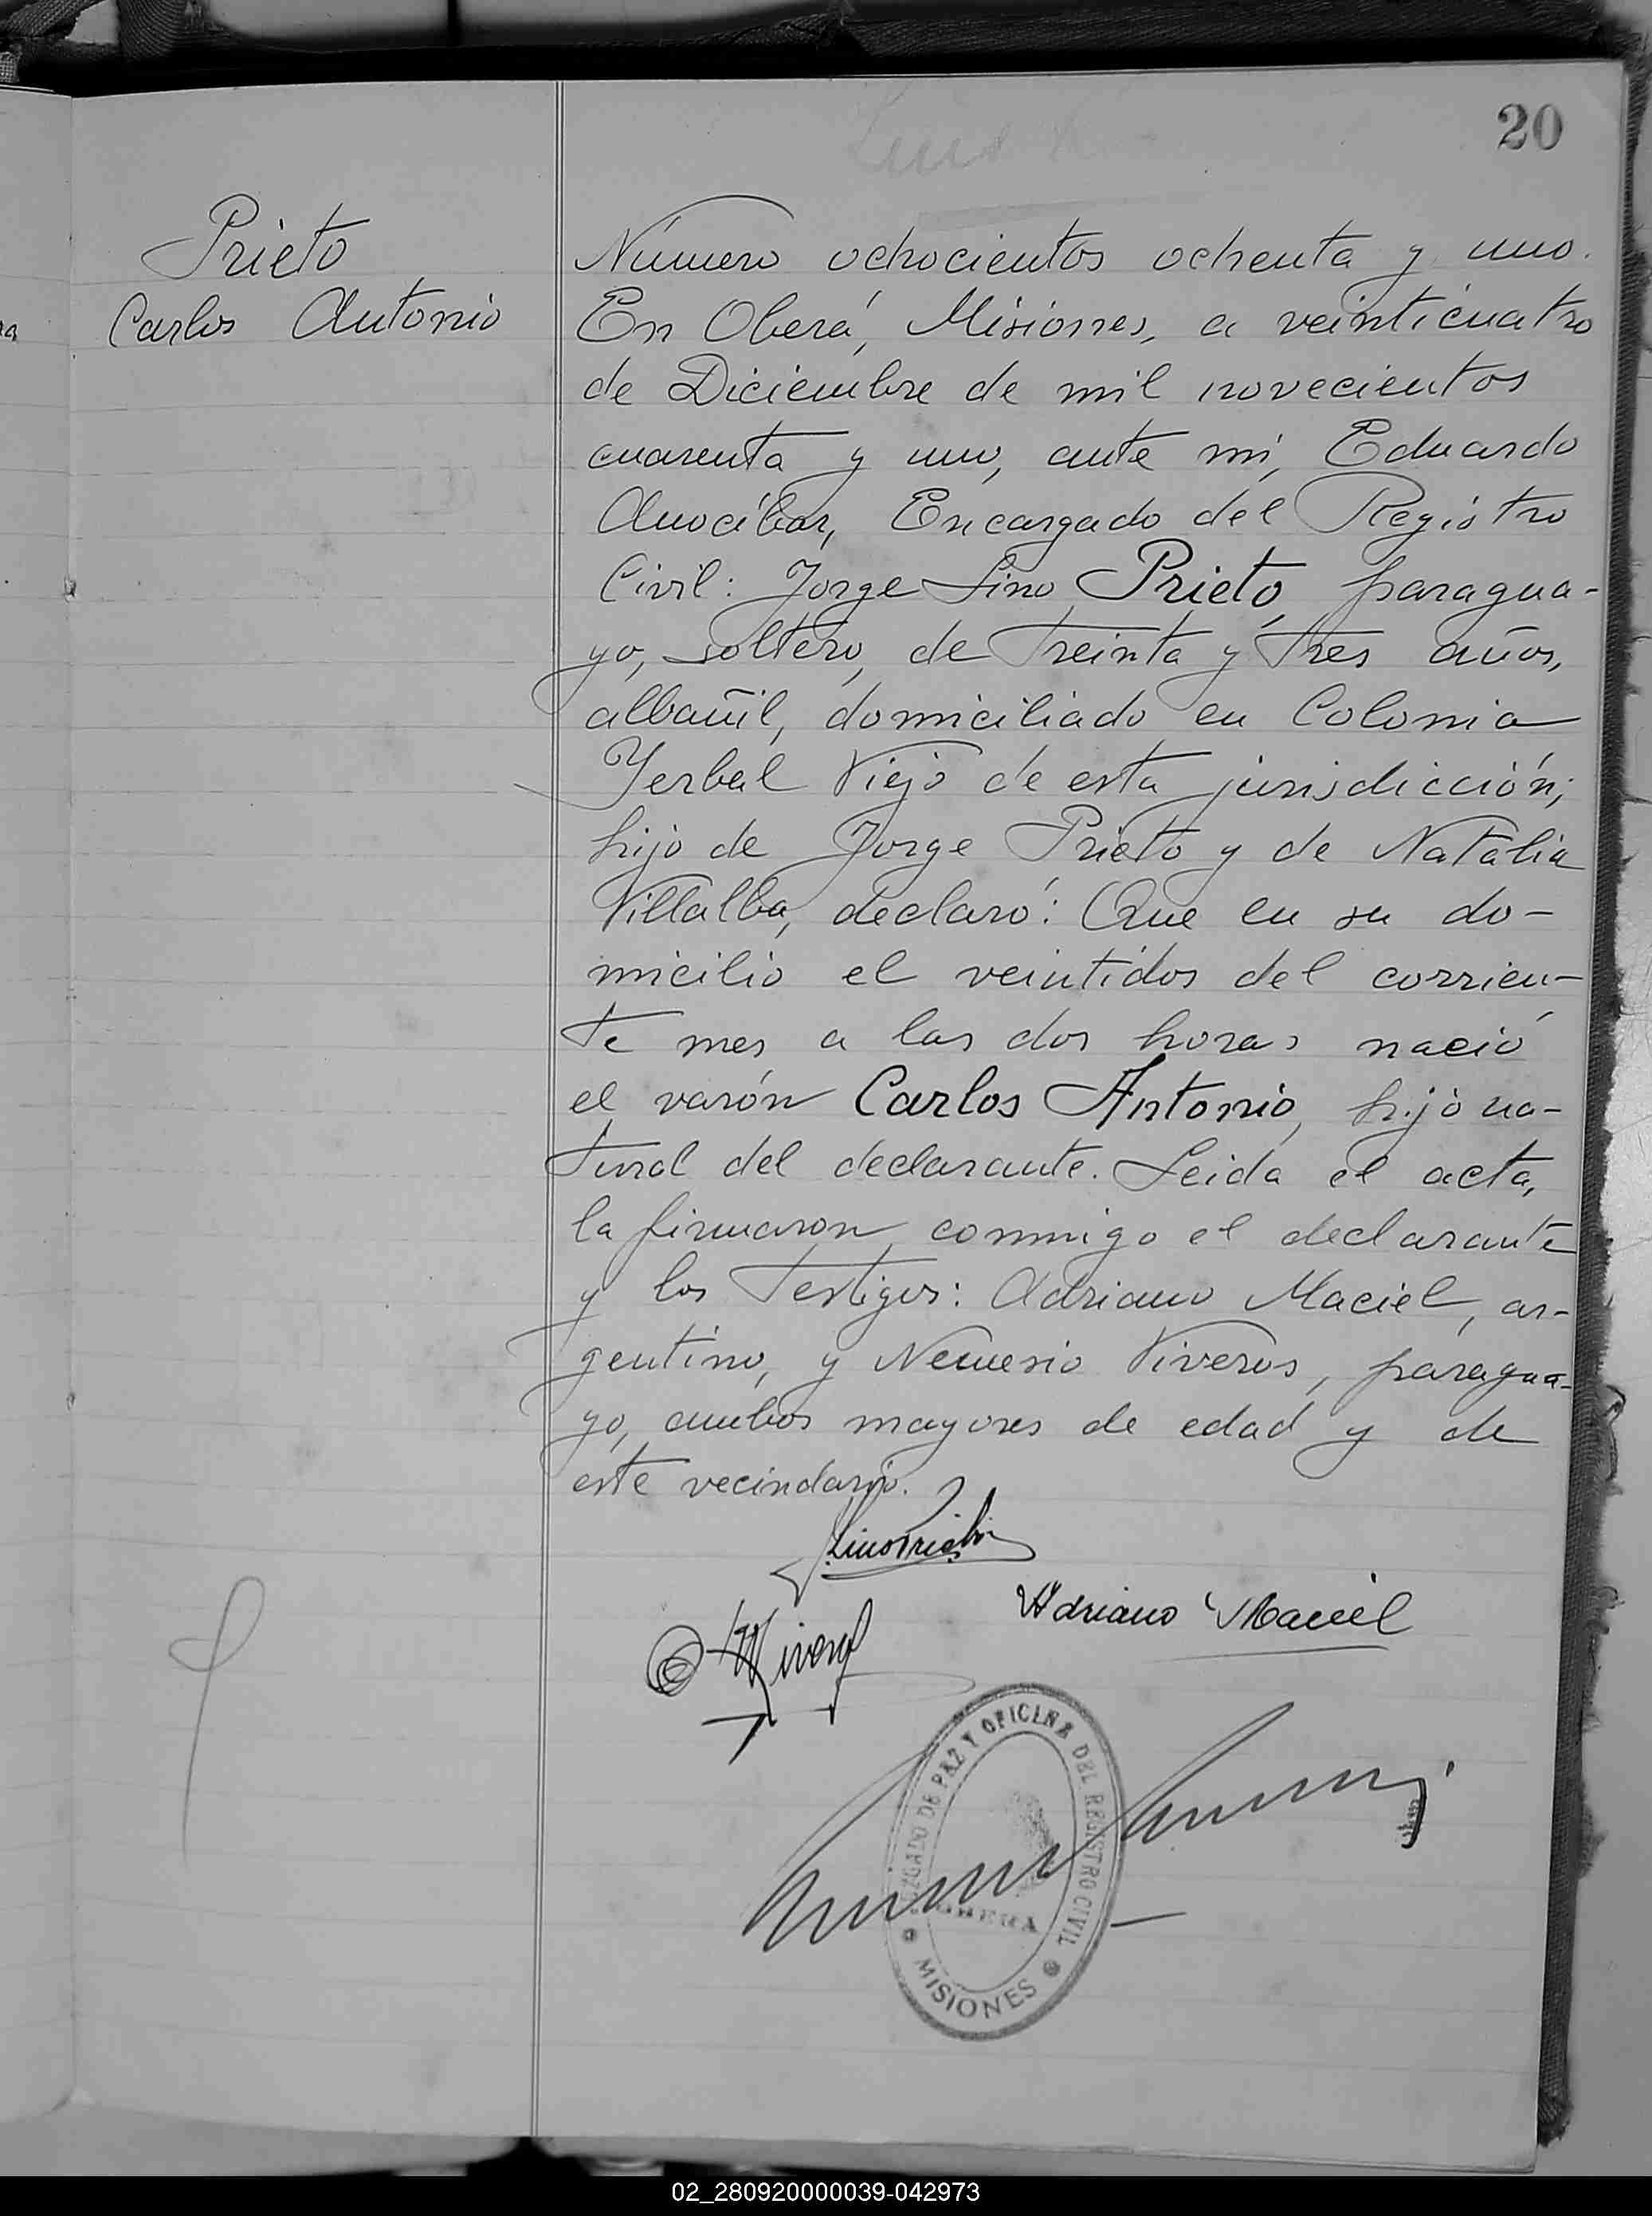 20
Prieto
Carlos Antonio
Número ochocientos ochenta y uno.
En Oberá, Misiones, a veinticuatro
de Diciembre de mil novecientos
cuarenta y uno, ante mí, Eduardo
Anocíbar, Encargado del Registro
Civil: Jorge Lino Prieto, paragua-
yo, soltero, de treinta y tres años,
albañil, domiciliado en Colonia
Yerbal Viejo de esta jurisdicción;
hijo de Jorge Prieto y de Natalia
Villalba, declaró: Que en su do-
micilio el veintidos del corrien-
te mes a las dos horas nació
el varón Carlos Antonio, hijo na-
tural del declarante. Leida el acta,
la firmaron conmigo el declarante
y los testigos: Adriano Maciel, ar-
gentino, y Nemesio Viveros, paragua-
yo, ambos mayores de edad y de
este vecindario.
Lino Prieto
Adriano Maciel
JUZGADO DE PAZ Y OFICINA DEL REGISTRO CIVIL
OBERA
MISIONES
02_280920000039-042973